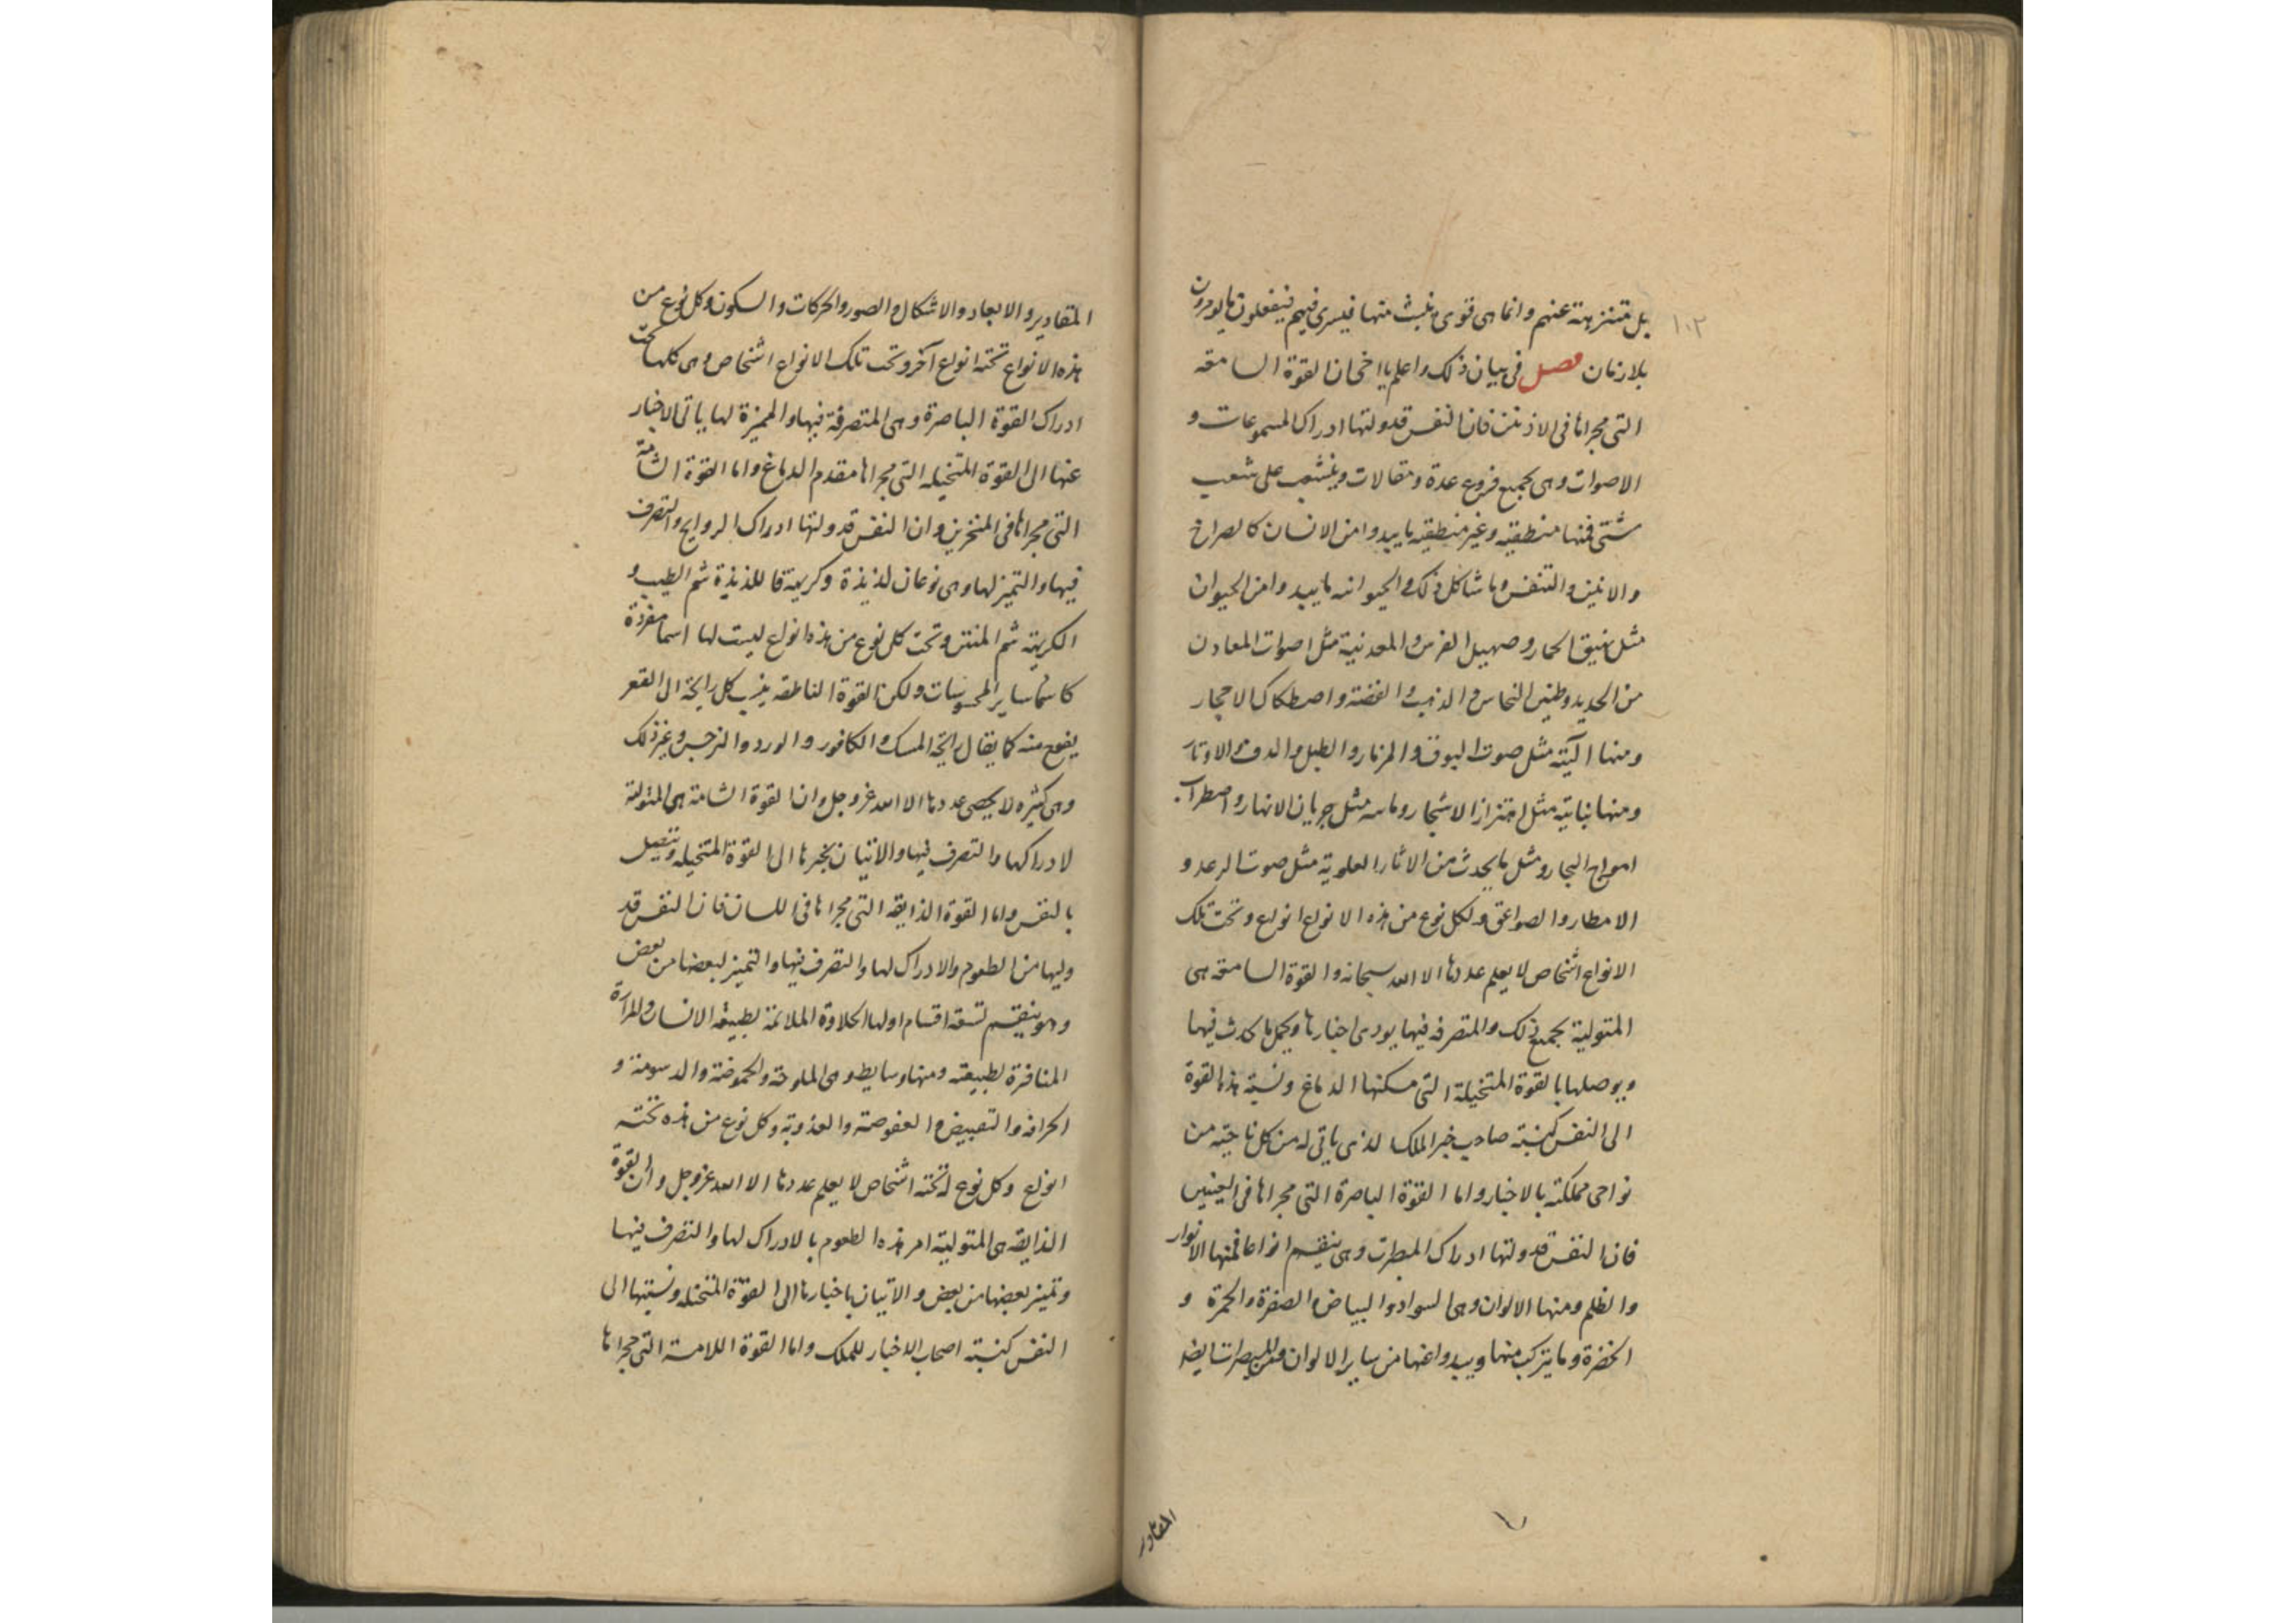 ١٠٢
بل متنزهة عنهم وانما هى قوى ينبث منها فيسرى فيهم فيفعلون ما يومرون
بلا زمان فصل فى بيان ذلك واعلم يا اخى ان القوة السامعه
التى مجراها فى الاذنين فان النفس قد ولتها ادراك المسموعات و
الاصوات وهى بجميع فروع عدة ومقالات وينشعب على شعب
شتى فمنها منطقيه وغير منطقيه ما يبدوا من الانسان كالصراخ
والانين والتنفس وما شاكل ذلك والحيوانه ما يبدوا من الحيوان
مثل نهيق الحمار وصهيل الفرس والمعدنية مثل اصوات المعادن
من الحديد وطنين النحاس والذهب والفضة واصطكاك الاحجار
ومنها آليّة مثل صوت البوق والمزمار والطبل والدف والاوتار
ومنها نباتية مثل اهتزاز الاشجار ومائيه مثل جريان الانهار واضطراب
امواج البحار ومثل ما يحدث من الاثار العلوية مثل صوت الرعد و
الامطار والصواعق ولكل نوع من هذه الانواع انواع وتحت تلك
الانواع اشخاص لا يعلم عددها الا الله سبحانه والقوة السامعه هى
المتولية بجميع ذلك والمتصرفه فيها يودى اخبارها ويحمل ما يحدث فيها
ويوصلها بالقوة المتخيلة التى مسكنها الدماغ ونسبة هذه القوة
الى النفس كنسبة صاحب خبر الملك الذى ياتى له من كل ناحية من
نواحى مملكته بالاخبار واما القوة الباصرة التى مجراها فى العينين
فان النفس قد ولتها ادراك المبصرات وهى ينقسم انواعا فمنها الانوار
والظلم ومنها الالوان وهى السواد والبياض والصفرة والحمرة و
الخضرة وما يتركب منها ويبدوا عنها من ساير الالوان ومن المبصرات ايضا
المقادير
المقادير والابعاد والاشكال والصور والحركات والسكون وكل نوع من
هذه الانواع تحته انواع آخر وتحت تلك الانواع اشخاص وهى كلها تحت
ادراك القوة الباصرة وهى المتصرفة فيها والمميزة لها ياتى الاخبار
عنها الى القوة المتخيله التى مجراها مقدم الدماغ واما القوة الشامّة
التى مجراها فى المنخرين وان النفس قد ولتها ادراك الروايح والتصرف
فيها والتميز لها وهى نوعان لذيذة وكريهة فا للذيذة شم الطيب و
الكريهة شم المنتن وتحت كل نوع من هذه انواع ليست لها اسما مفردة
كاسما ساير المحسوسات ولكن القوة الناطقه ينسب كل رايحة الى القعر
يفوح منه كما يقال رايحة المسك والكافور والورد والنرجس وغير ذلك
وهى كثيره لا يحصى عددها الا الله عز وجل وان القوة الشامة هى المتولية
لادراكها والتصرف فيها والاتيان بخبرها الى القوة المتخيله ويتصل
بالنفس واما القوة الذايقه التى مجراها فى اللسان فان النفس قد
وليها من الطعوم والادراك لها والتصرف فيها والتميز لبعضها من بعض
وهو ينقسم تسعة اقسام اولها الحلاوة الملائمة لطبيعة الانسان والمرارة
المنافرة لطبيعته ومنها وسايط وهى الملوحة والحموضة والدسومة و
الحرافه والتعبيض والعفوصة والعذوبة وكل نوع من هذه تحته
انواع وكل نوع له تحته اشخاص لا يعلم عددها الا الله عز وجل وان القوة
الذايقه هى المتولية امر هذه الطعوم بالادراك لها والتصرف فيها
وتميز بعضها من بعض والاتيان باخبارها الى القوّة المتخيله ونسبتها الى
النفس كنسبة اصحاب الاخبار للملك واما القوة اللامسة التى مجراها